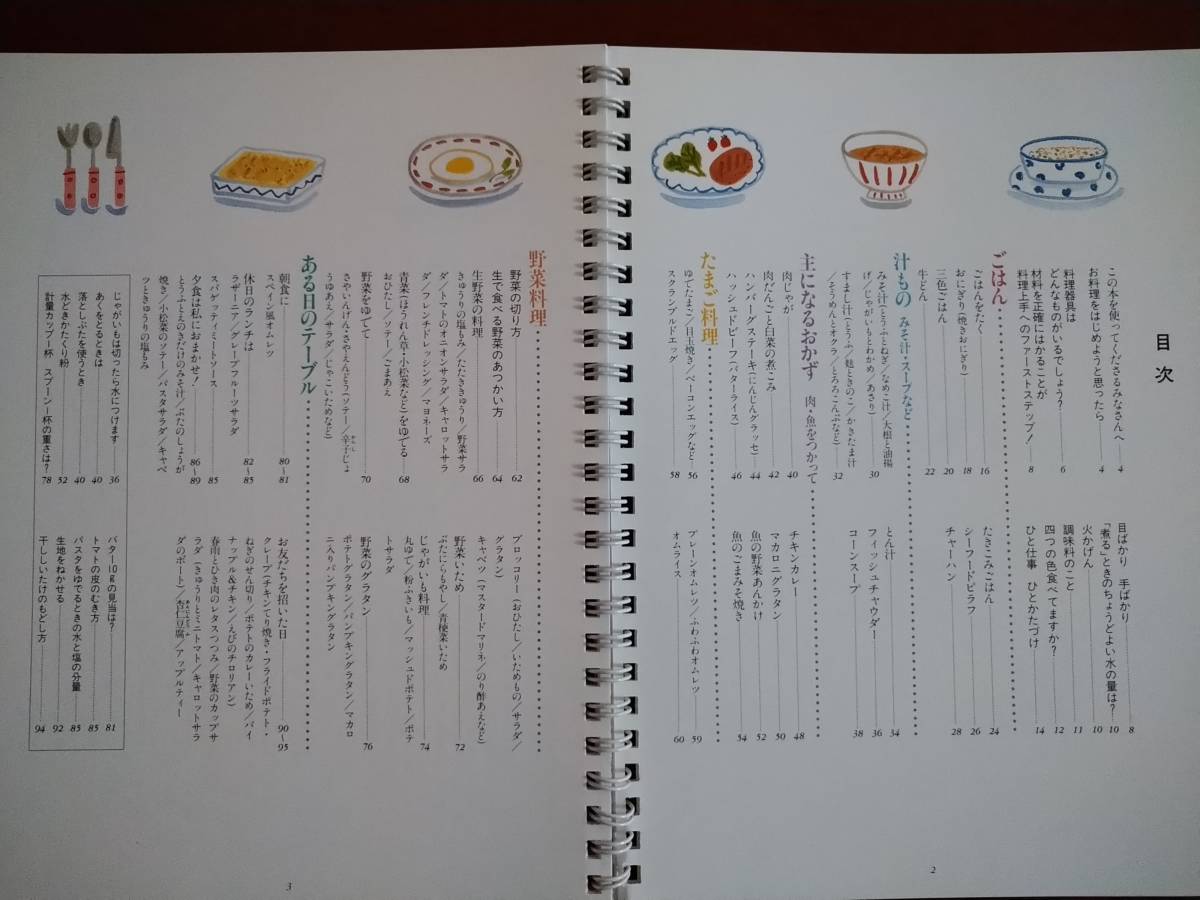 目次
この本を使ってくださるみなさんへ 4
お料理をはじめようと思ったら 4
料理器具は
どんなものがいるでしょう? 6
材料を正確にはかることが
料理上手へのファーストステップ! 8
目ばかり 手ばかり 8
「煮る」ときのちょうどよい水の量は? 10
火かげん 10
調味料のこと 11
四つの色、食べてますか? 12
ひと仕事 ひとかたづけ 14
ごはん
ごはんをたく 16
おにぎり(焼きおにぎり) 18
三色ごはん 20
牛どん 22
たきこみごはん 24
シーフードピラフ 26
チャーハン 28
汁もの みそ汁・スープなど
みそ汁(とうふとねぎ/なめこ汁/大根と油揚
げ/じゃがいもとわかめ/あさり) 30
すまし汁(とうふ/麩ときのこ/かきたま汁
/そうめんとオクラ/とろろこんぶなど) 32
とん汁 34
フィッシュチャウダー 36
コーンスープ 38
主になるおかず 肉・魚をつかって
肉じゃが 40
肉だんごと白菜の煮こみ 42
ハンバーグステーキ(にんじんグラッセ) 44
ハッシュドビーフ(バターライス) 46
チキンカレー 48
マカロニグラタン 50
魚の野菜あんかけ 52
魚のごまみそ焼き 54
たまご料理
ゆでたまご/目玉焼き/ベーコンエッグなど 56
スクランブルドエッグ 58
プレーンオムレツ/ふわふわオムレツ 59
オムライス 60
2
野菜料理
野菜の切り方 62
生で食べる野菜のあつかい方 64
生野菜の料理 66
きゅうりの塩もみ/たたききゅうり/野菜サラ
ダ/トマトのオニオンサラダ/キャロットサラ
ダ/フレンチドレッシング/マヨネーズ
青菜(ほうれん草・小松菜など)をゆでる 68
おひたし/ソテー/ごまあえ
野菜をゆでて 70
さやいんげん・さやえんどう(ソテー/辛子じょ
うゆあえ/サラダ/じゃこいためなど)
ブロッコリー(おひたし/いためもの/サラダ/
グラタン)
キャベツ(マスタードマリネ/のり酢あえなど)
野菜いため 72
ぶたにらもやし/青梗菜いため
じゃがいも料理 74
丸ゆで/粉ふきいも/マッシュドポテト/ポテ
トサラダ
野菜のグラタン 76
ポテトグラタン/パンプキングラタン/マカロ
ニ入りパンプキングラタン
ある日のテーブル
朝食に 80~81
スペイン風オムレツ
休日のランチは 82~85
ラザーニア/グレープフルーツサラダ
スパゲッティミートソース 85
夕食は私におまかせ! 86~89
とうふとえのきだけのみそ汁/ぶたのしょうが
焼き/小松菜のソテー/パスタサラダ/キャベ
ツときゅうりの塩もみ
お友だちを招いた日 90~95
クレープ(チキンてり焼き・フライドポテト・
ねぎのせん切り/ポテトのカレーいため/パイ
ナップル&チキン/えびのチロリアン)
春雨とひき肉のレタスつつみ/野菜のカップサ
ラダ(きゅうりとミニトマト/キャロットサラ
ダのボート)/杏仁豆腐/アップルティー
じゃがいもは切ったら水につけます 36
あくをとるときは 40
落としぶたを使うとき 40
水どきかたくり粉 52
計量カップ一杯 スプーン一杯の重さは? 78
バター10gの見当は? 81
トマトの皮のむき方 85
パスタをゆでるときの水と塩の分量 85
生地をねかせる 92
干ししいたけのもどし方 94
3